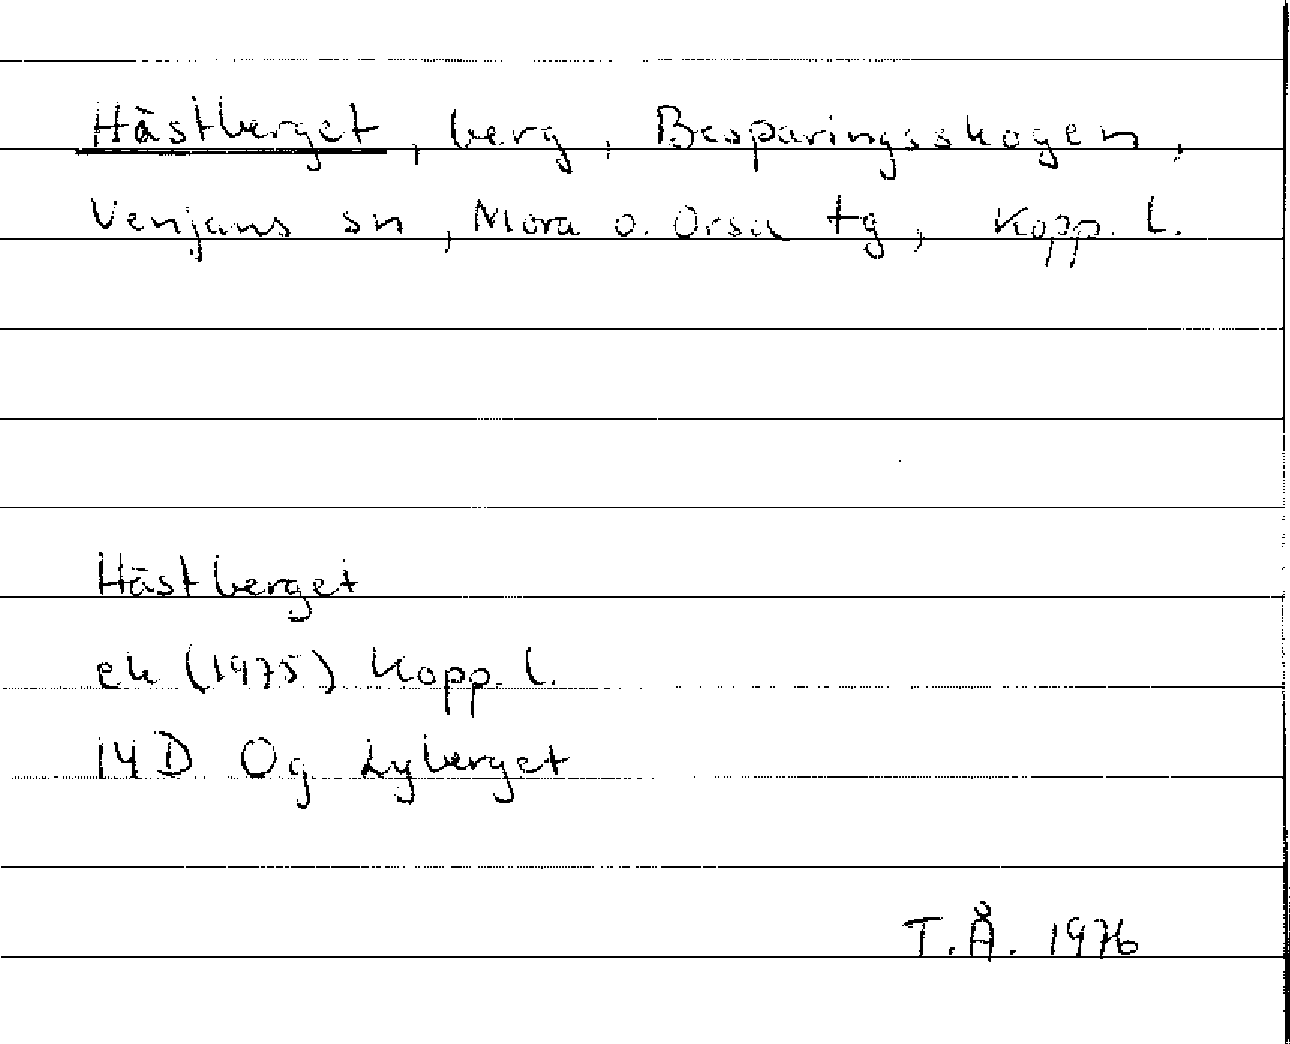 Hästberget, berg, Besparingsskogen,
Venjans sn, Mora o. Orsa tg, Kopp. l.
Hästberget
ek (1975) Kopp. l.
14D Og Lyberget
T.Å. 1976